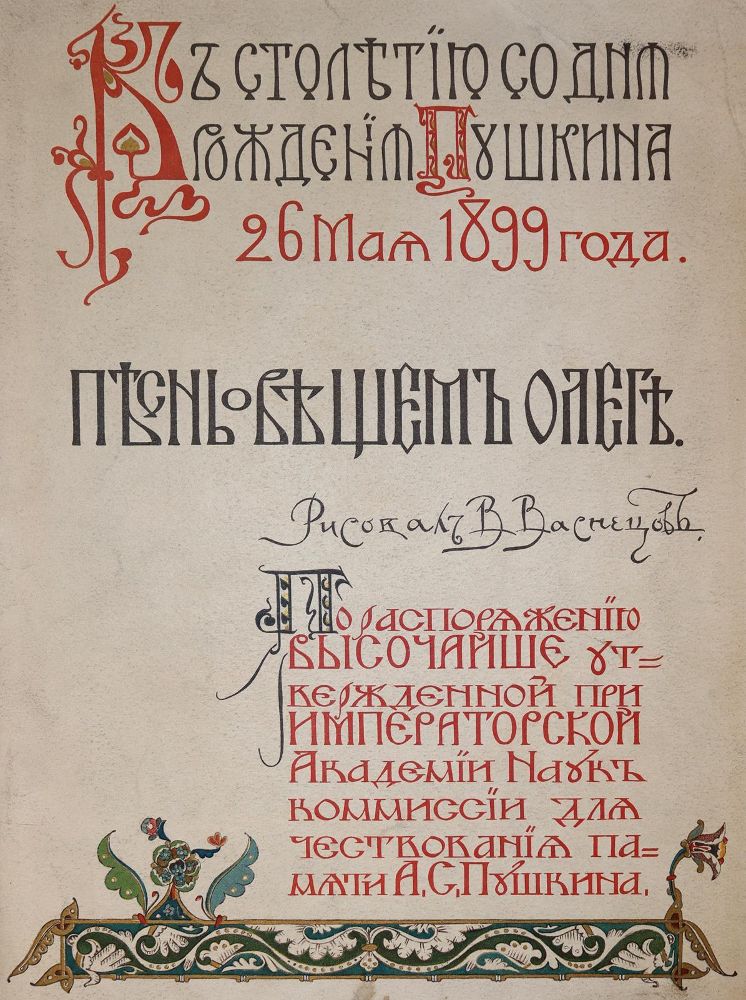 Къ столѣтію со дня
рожденія Пушкина
26 Мая 1899 года.
Пѣснь о вѣщемъ Олегѣ.
Рисовалъ В Васнецовъ.
По распоряженію
ВЫСОЧАЙШЕ ут=
вержденной при
ИМПЕРАТОРСКОЙ
Академіи Наукъ
коммиссіи для
чествованія па=
мяти А.С.Пушкина.